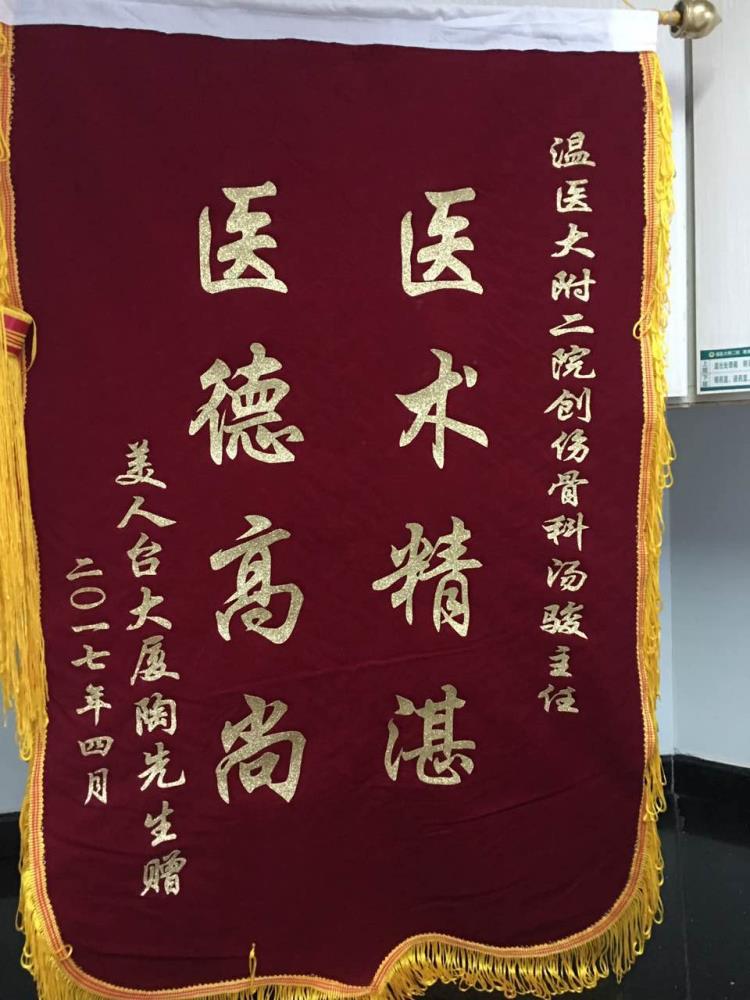 温医大附二院创伤骨科汤骏主任
医术精湛
医德高尚
美人台大厦陶先生赠
二〇一七年四月